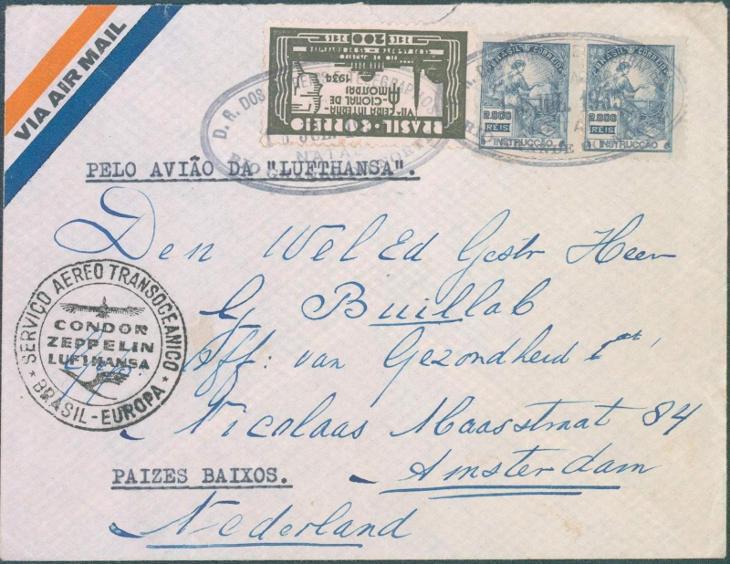 VIA AIR MAIL
BRASIL-CORREIO
VII-FEIRA INTERNA-
CIONAL DE
AMOSTRAS
1934
200
REIS
D. R. DOS
NATAL
BRASIL CORREIO
2.000
REIS
INSTRUCÇÃO
BRASIL CORREIO
2.000
REIS
INSTRUCÇÃO
PELO AVIÃO DA "LUFTHANSA".
Den Wel Ed Gestr Heer
G Buillab
Off: van Gezondheid
Nicolaas Maasstraat 84
Amsterdam
PAIZES BAIXOS.
Nederland
SERVIÇO AEREO TRANSOCEANICO
CONDOR
ZEPPELIN
LUFTHANSA
BRASIL-EUROPA